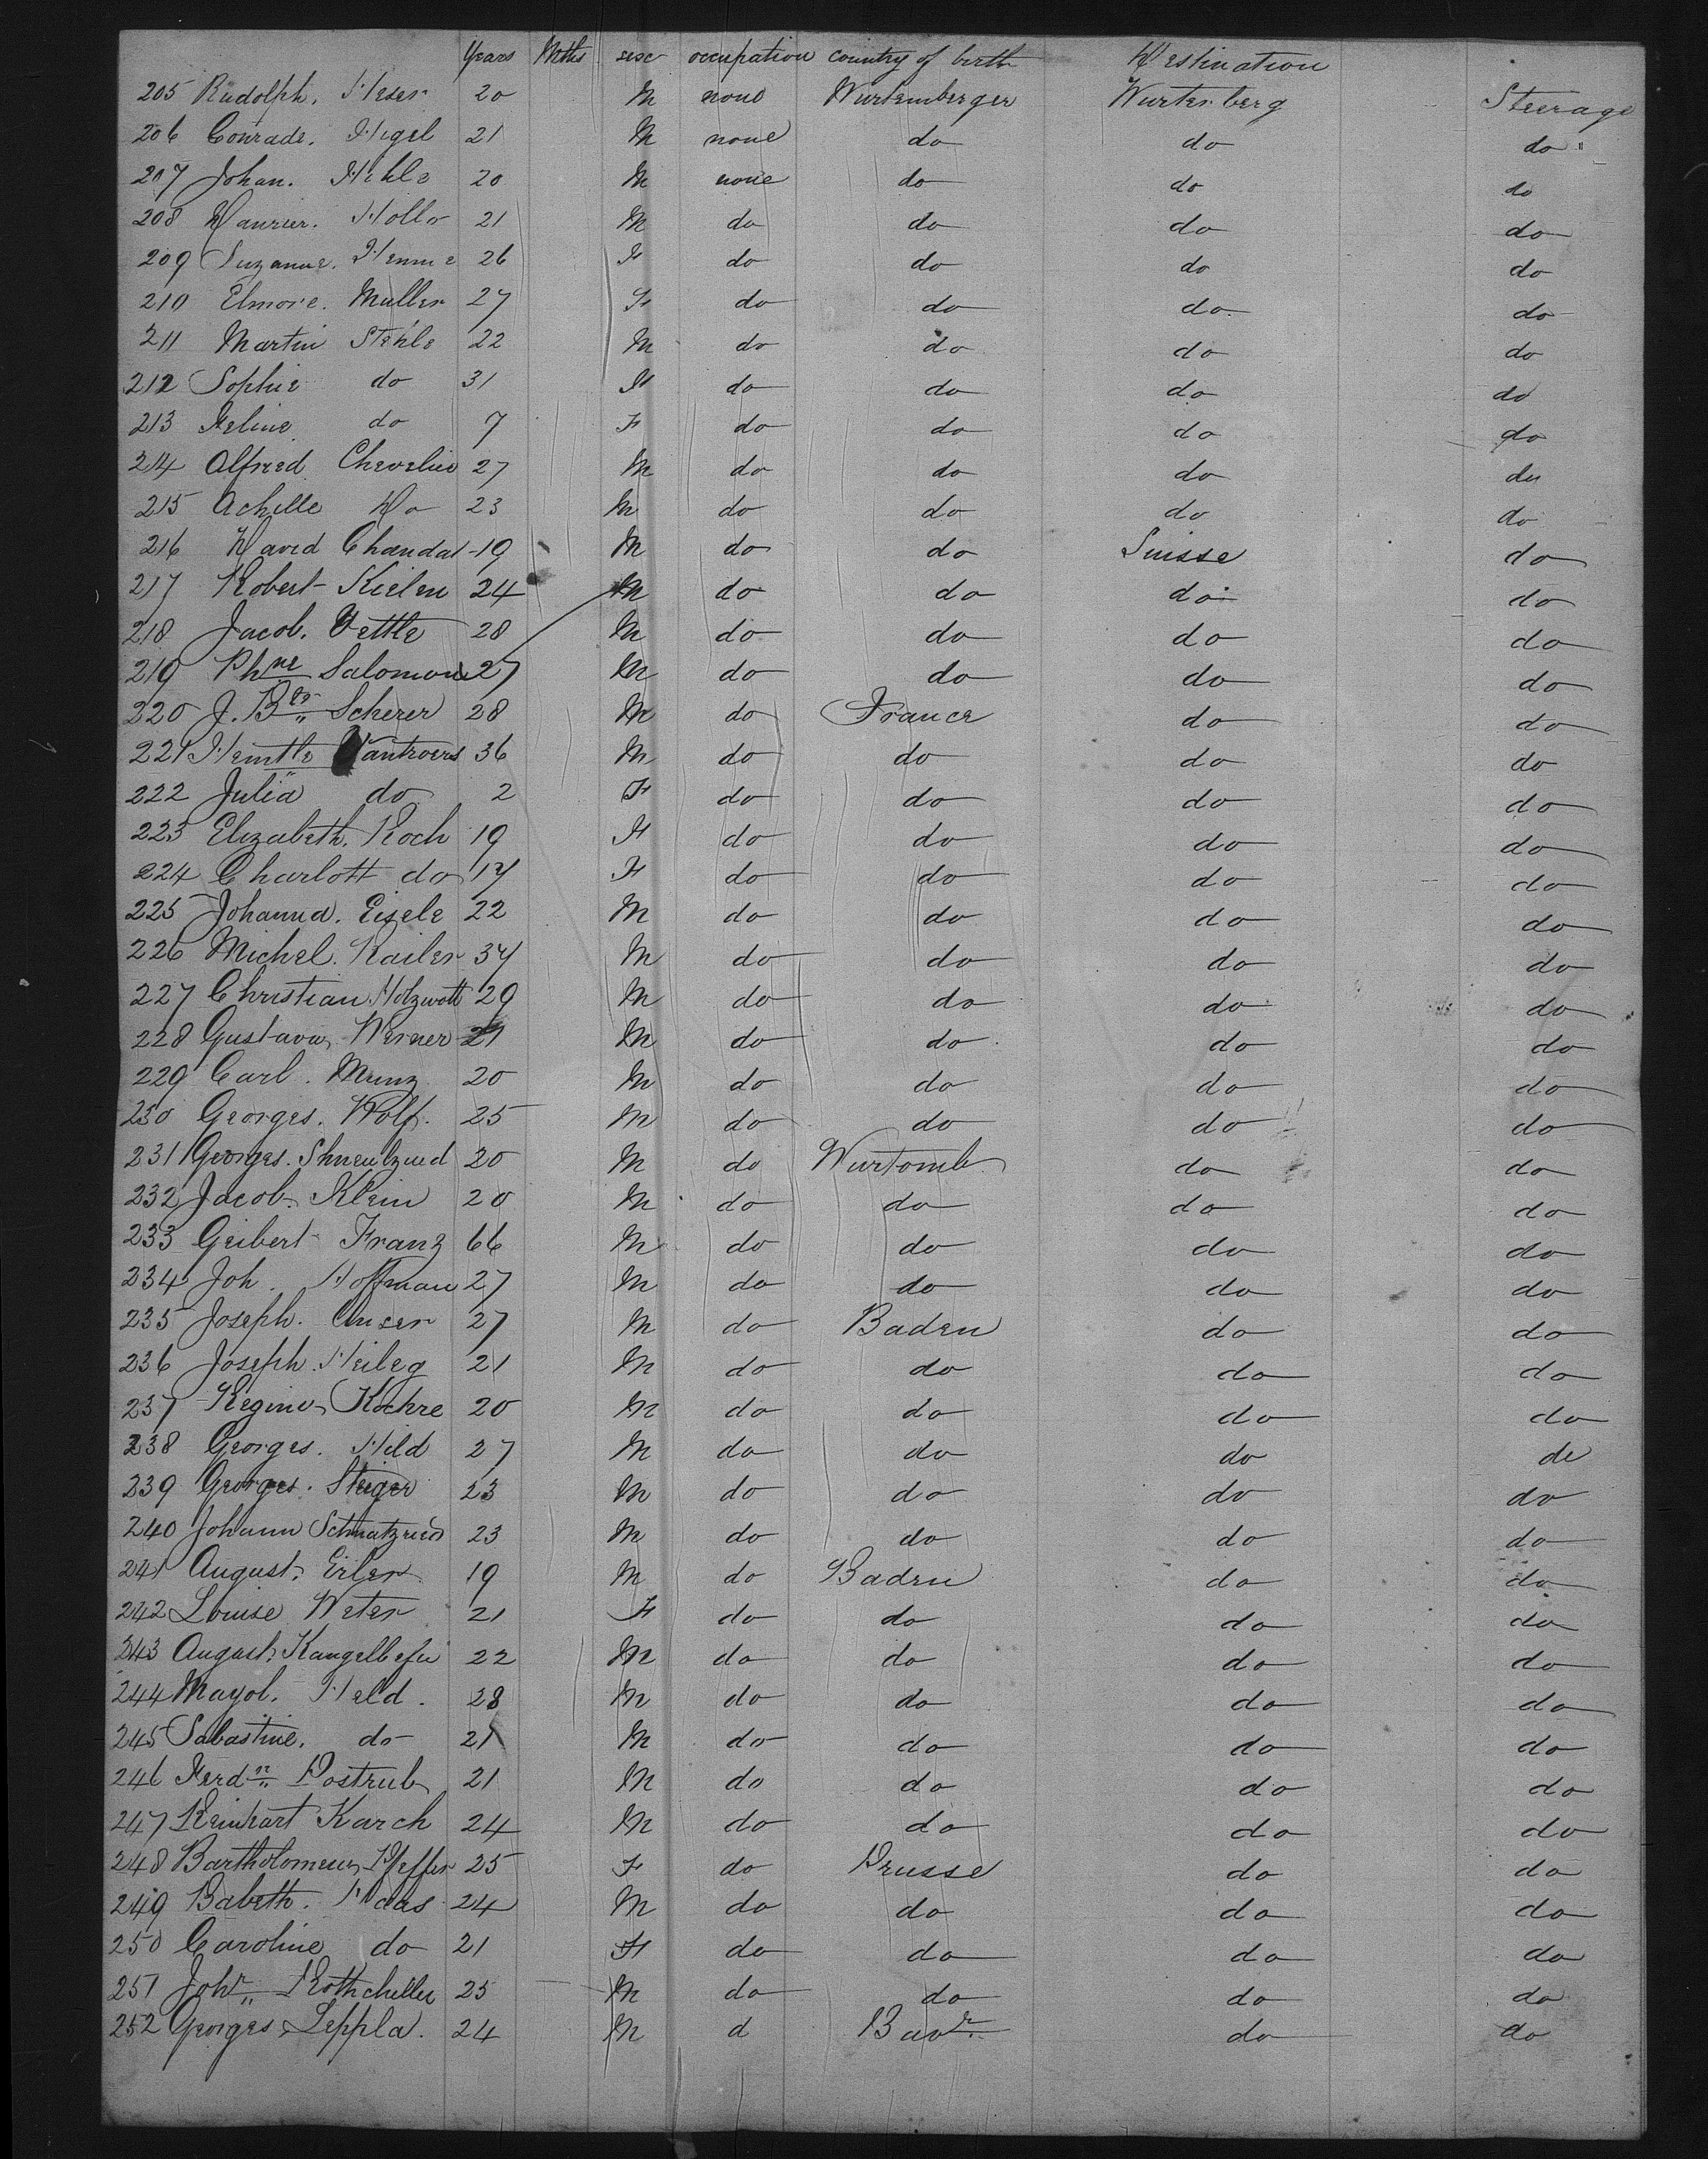 Years Mths sex occupation country of birth Destination
205 Rudolph. Heser 20 M none Wurtemberger Wurtenberg Steerage
206 Conrade. Higel 21 M none do do do "
207 Johan. Hehle 20 M none do do do
208 Haurier. Holler 21 M do do do do
209 Suzanne. Henne 26 F do do do do
210 Elmore. Muller 27 F do do do do
211 Martin Stehle 22 M do do do do
212 Sophie do 31 F do do do do
213 Feline do 7 F do do do do
214 Alfred Chevelin 27 M do do do do
215 Achille Do 23 M do do do do
216 David Chandal 19 M do do Suisse do
217 Robert Kielen 24 M do do do do
218 Jacob. Vettle 28 M do do do do
219 Phne Salomon 27 M do do do do
220 J. Bte Scherer 28 M do France do do
221 Vantroers 36 M do do do do
222 Julia do 2 F do do do do
223 Elizabeth. Koch 19 F do do do do
224 Charlott do 17 F do do do do
225 Johanna. Eisele 22 M do do do do
226 Michel. Kailer 34 M do do do do
227 Christian Holzwott 29 M do do do do
228 Gustave Werner 21 M do do do do
229 Carl. Munz 20 M do do do do
230 Georges. Wolf. 25 M do do do do
231 Georges. 20 M do Wurtemb do do
232 Jacob. Klein 20 M do do do do
233 Geibert Franz 66 M do do do do
234 Joh. Hoffman 27 M do do do do
235 Joseph. Anser 27 M do Baden do do
236 Joseph. Heileg 21 M do do do do
237 Regine Kochre 20 M do do do do
238 Georges. Hild 27 M do do do de
239 Georges. Steiger 23 M do do do do
240 Johann Schnatzried 23 M do do do do
241 August. Eiler 19 M do Baden do do
242 Louise Weter 21 F do do do do
243 August. 22 M do do do do
244 Mayol. Held. 28 M do do do do
245 Sabastine. do 21 M do do do do
246 Ferdn Postrub 21 M do do do do
247 Reinhart Karch 24 M do do do do
248 Bartholomeus Pfeffer 25 F do Prusse do do
249 Babeth. Haas 24 M do do do do
250 Caroline do 21 F do do do do
251 Johr Rothcheller 25 M do do do do
252 Georges Leppla. 24 M d Bavr do do